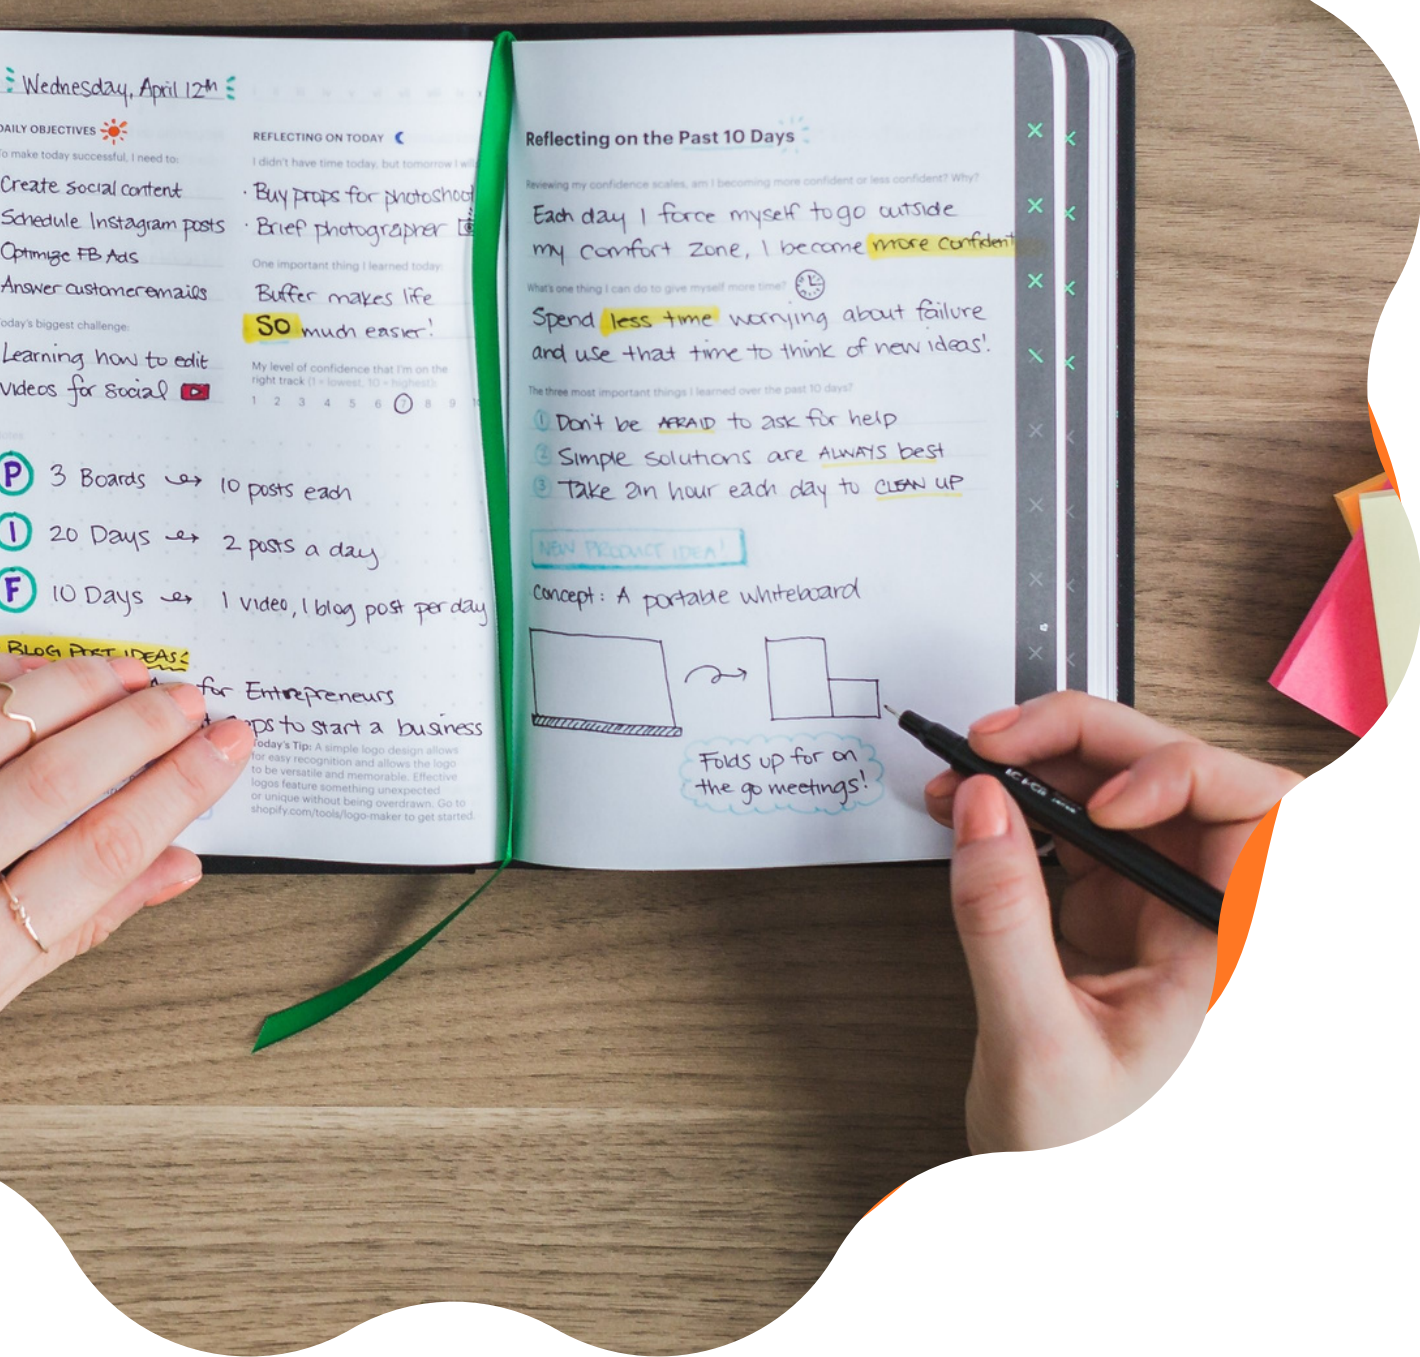 Wednesday, April 12th
DAILY OBJECTIVES
To make today successful, I need to:
Create social content
Schedule Instagram posts
Optimize FB Ads
Answer customer emails
Today's biggest challenge:
Learning how to edit
videos for social
REFLECTING ON TODAY
I didn't have time today, but tomorrow I will
· Buy props for photoshoot
· Brief photographer
One important thing I learned today:
Buffer makes life
SO much easier!
My level of confidence that I'm on the
right track (1 = lowest, 10 = highest):
1 2 3 4 5 6 7 8 9
notes
P 3 Boards → 10 posts each
I 20 Days → 2 posts a day
F 10 Days → 1 video, 1 blog post per day
BLOG POST IDEAS:
for Entrepreneurs
to start a business
Today's Tip: A simple logo design allows
for easy recognition and allows the logo
to be versatile and memorable. Effective
logos feature something unexpected
or unique without being overdrawn. Go to
shopify.com/tools/logo-maker to get started.
Reflecting on the Past 10 Days
Reviewing my confidence scales, am I becoming more confident or less confident? Why?
Each day I force myself to go outside
my comfort zone, I become more confident
What's one thing I can do to give myself more time?
Spend less time worrying about failure
and use that time to think of new ideas!
The three most important things I learned over the past 10 days?
1 Don't be AFRAID to ask for help
2 Simple solutions are ALWAYS best
3 Take an hour each day to CLEAN UP
NEW PRODUCT IDEA!
Concept: A portable whiteboard
Folds up for on
the go meetings!